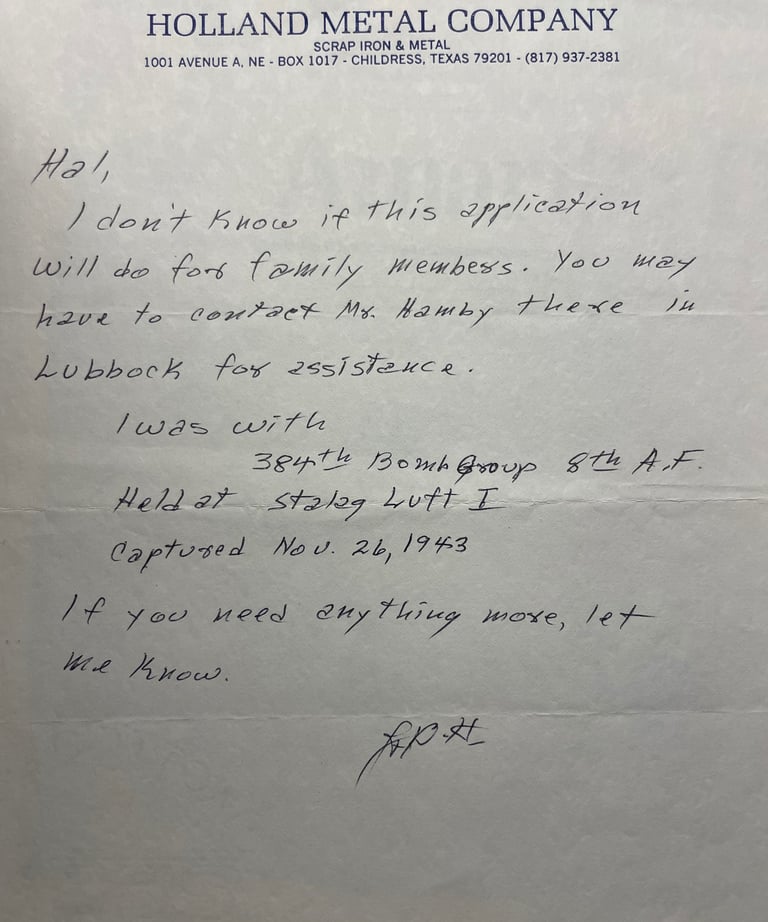 HOLLAND METAL COMPANY
SCRAP IRON & METAL
1001 AVENUE A, NE - BOX 1017 - CHILDRESS, TEXAS 79201 - (817) 937-2381
Hal,
I don't know if this application
will do for family members. You may
have to contact Mr. Hamby there in
Lubbock for assistance.
I was with
384th Bomb Group 8th A.F.
Held at Stalag Luft I
Captured Nov. 26, 1943
If you need anything more, let
me know.